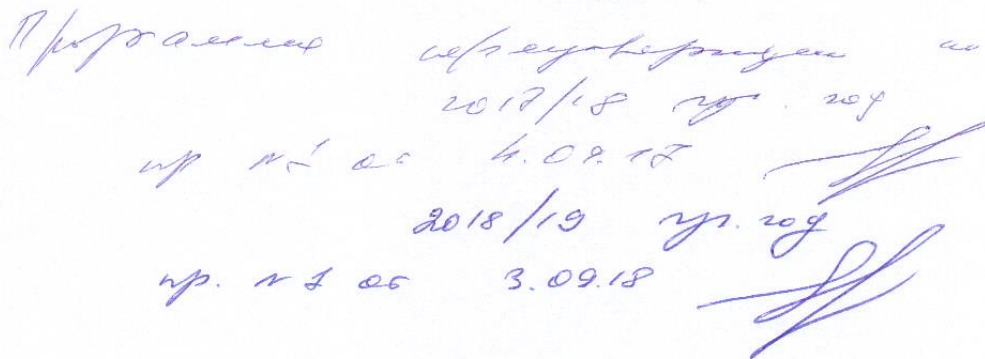 Программа на
2017/18 уч. год
пр № 1 от 4.09.17
2018/19 уч. год
пр. № 1 от 3.09.18